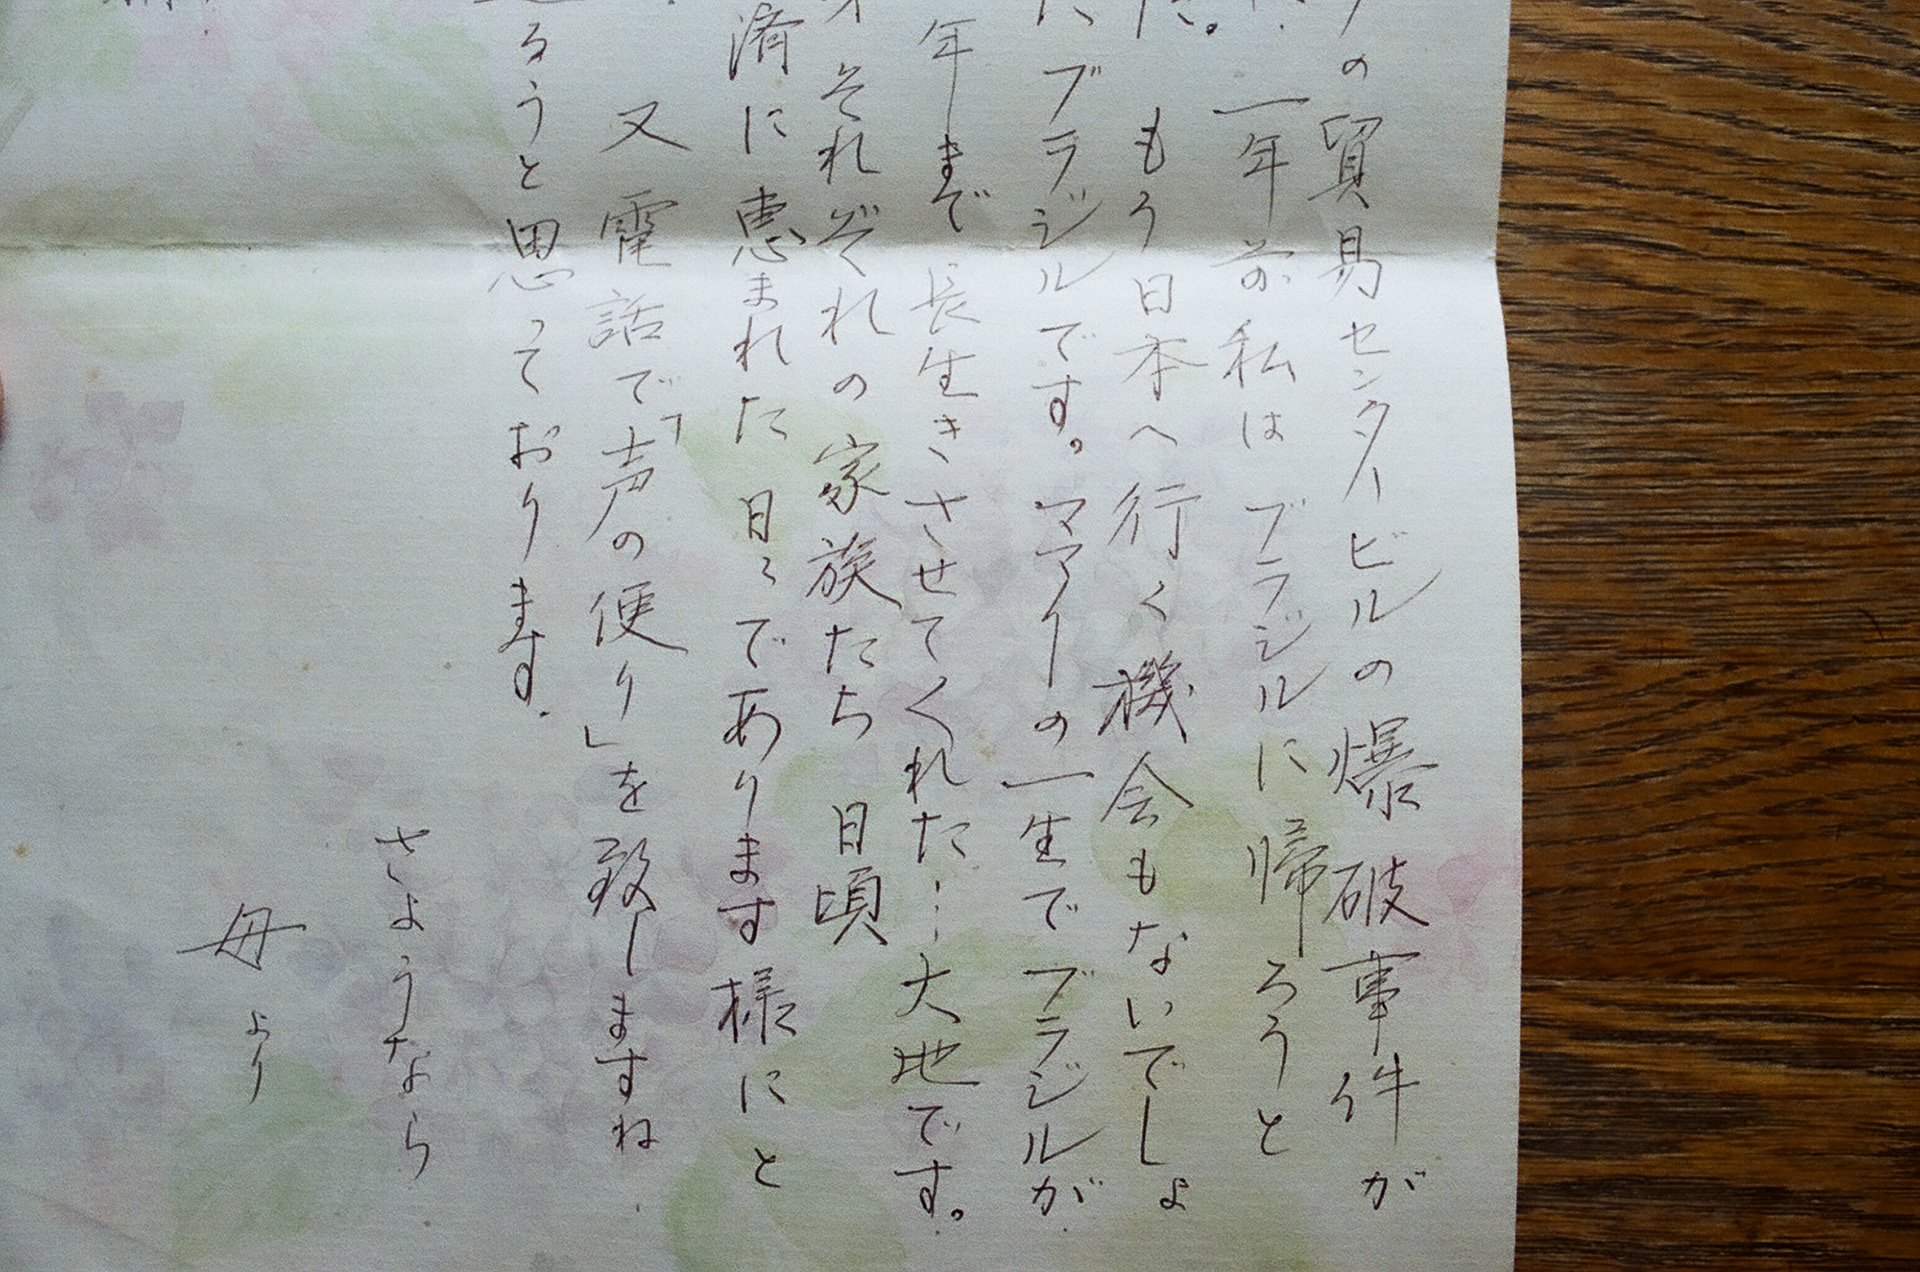 の貿易センタービルの爆破事件が
一年前私はブラジルに帰ろうと
た。もう日本へ行く機会もないでしょ
にブラジルです。マアリーの一生でブラジルが
年まで長生きさせてくれた…大地です。
それぞれの家族たち日頃
済に恵まれた日々であります様にと
又電話で「声の便り」を致しますね
ろうと思っております.
さようなら
母より